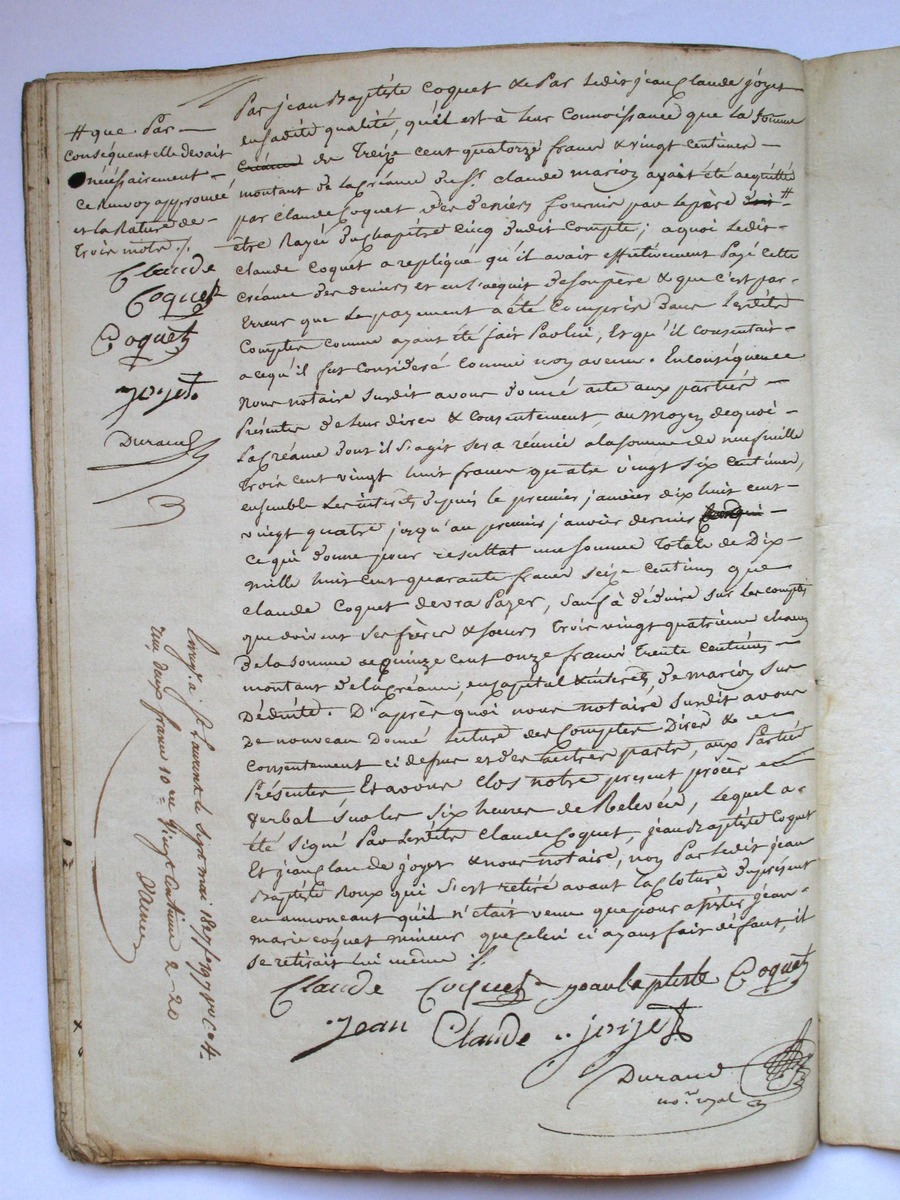 Par jean Baptiste coquet & Par ledit jean Claude joyet
en sadite qualité, qu'il est à leur connoissance que la somme
de Treize cent quatorze francs & vingt centimes —
montant de la créance du Sr. claude marion ayant été acquittée
par Claude Coquet des deniers fournis par le père #
être Rayée du chapitre cinq dudit compte; a quoi ledit
Claude Coquet a repliqué qu'il avait effectivement Payé cette
créance des deniers et en l'acquit de son père & que c'est par
Erreur que le payement a été compris dans lesdits
Comptes comme ayant été fait Par lui, Et qu'il consentait
a ce qu'il fut consideré comme non avenu. En conséquence
Nous notaire susdit avons donné acte aux parties —
Présentes de leur dires & consentement, au moyen de quoi —
La créance dont il s'agit sera réunie a la somme de neuf mille
Trois cent vingt huit francs quatre vingt six centimes,
ensemble les interets depuis le premier janvier dix huit cent
vingt quatre jusqu'au premier janvier dernier —
ce qui donne pour resultat une somme Totale de Dix
mille huit cent quarante francs seize centimes que
claude Coquet devra Payer, sauf à déduire sur les comptes
que doivent ses frères & soeurs Trois vingt quatrieme chacun
de la somme de quinze cent onze francs trente centimes —
montant de la créance en capital & interets, de marion sus
Déduite. D'après quoi nous notaire susdit avons
de nouveau donné lecture des comptes Dires & —
consentement ci dessus et des autres parts, aux Parties
Présentes Et avons clos notre present procès —
verbal sur les six heures de Relevée, lequel a
été signé Par lesdits Claude Coquet, jean Baptiste Coquet
Et jean Claude joyet & nous notaire, non Par ledit jean
Baptiste Roux qui s'est retiré avant la cloture du présent
en annonceant qu'il n'était venu que pour assister jean
marie coquet mineur que celui ci ayant fait défaut, il
se retirait lui même ./.
Claude Coquet jean baptiste Coquet
jean Claude joyet
Durand
no.re royal
# que Par —
conséquent elle devait
nécessairement —
ce renvoy approuvé
et la Rature de
Trois mots ./.
Claude
Coquet
Coquet
joyet
Durand
Enreg. à St Laurent le sept mai 1827 fo 197 Vo C 4.
Reçu deux francs 10.me Vingt Centimes 2-20